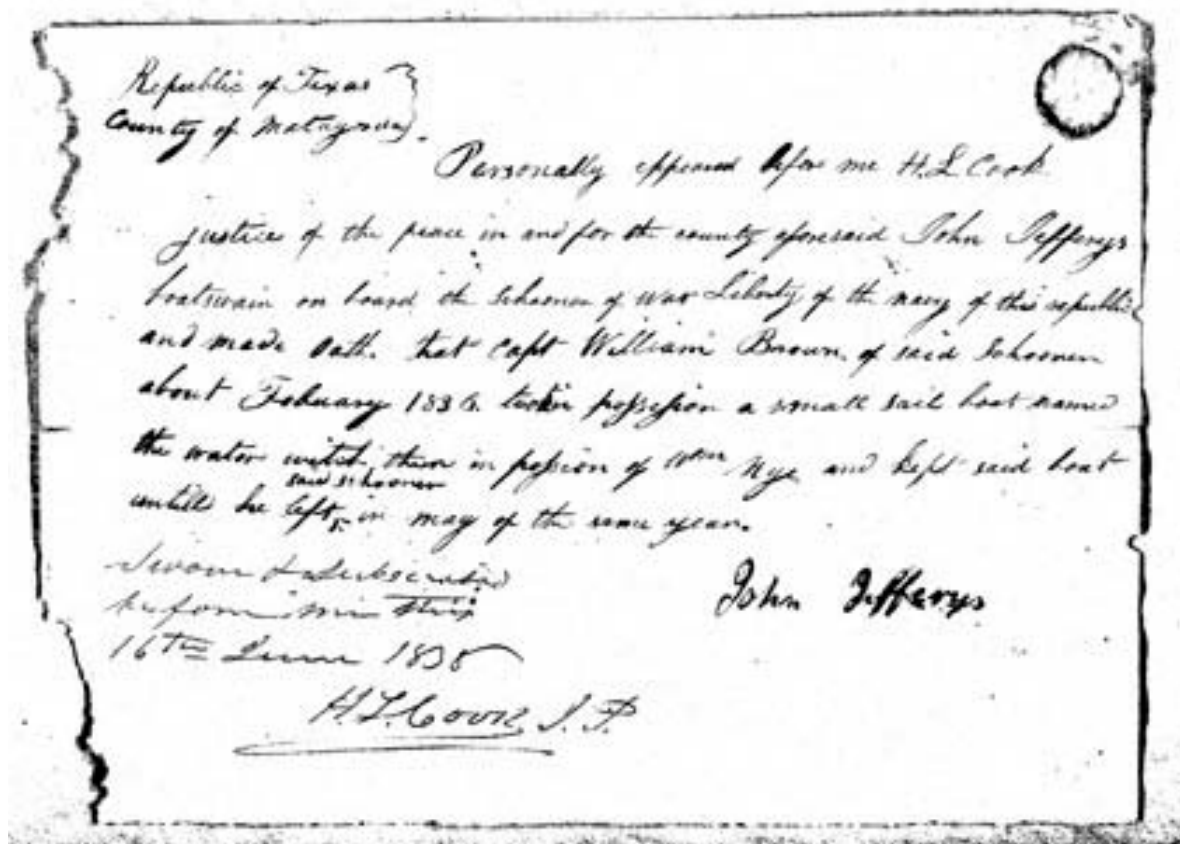 Republic of Texas
County of Matagorda
Personally appeared before me H. L. Cook
justice of the peace in and for the county aforesaid John Jefferys
boatswain on board the Schooner of war Liberty of the navy of this republic
and made oath that Capt William Brown of said Schooner
about February 1836 possession a small sail boat named
the water witch, then in possion of Wm Nye and kept said boat
said schooner
untill he left in may of the same year.
Sworn & Subscribed
before me this
16th June 1838
John Jefferys
H. L. Cook J. P.